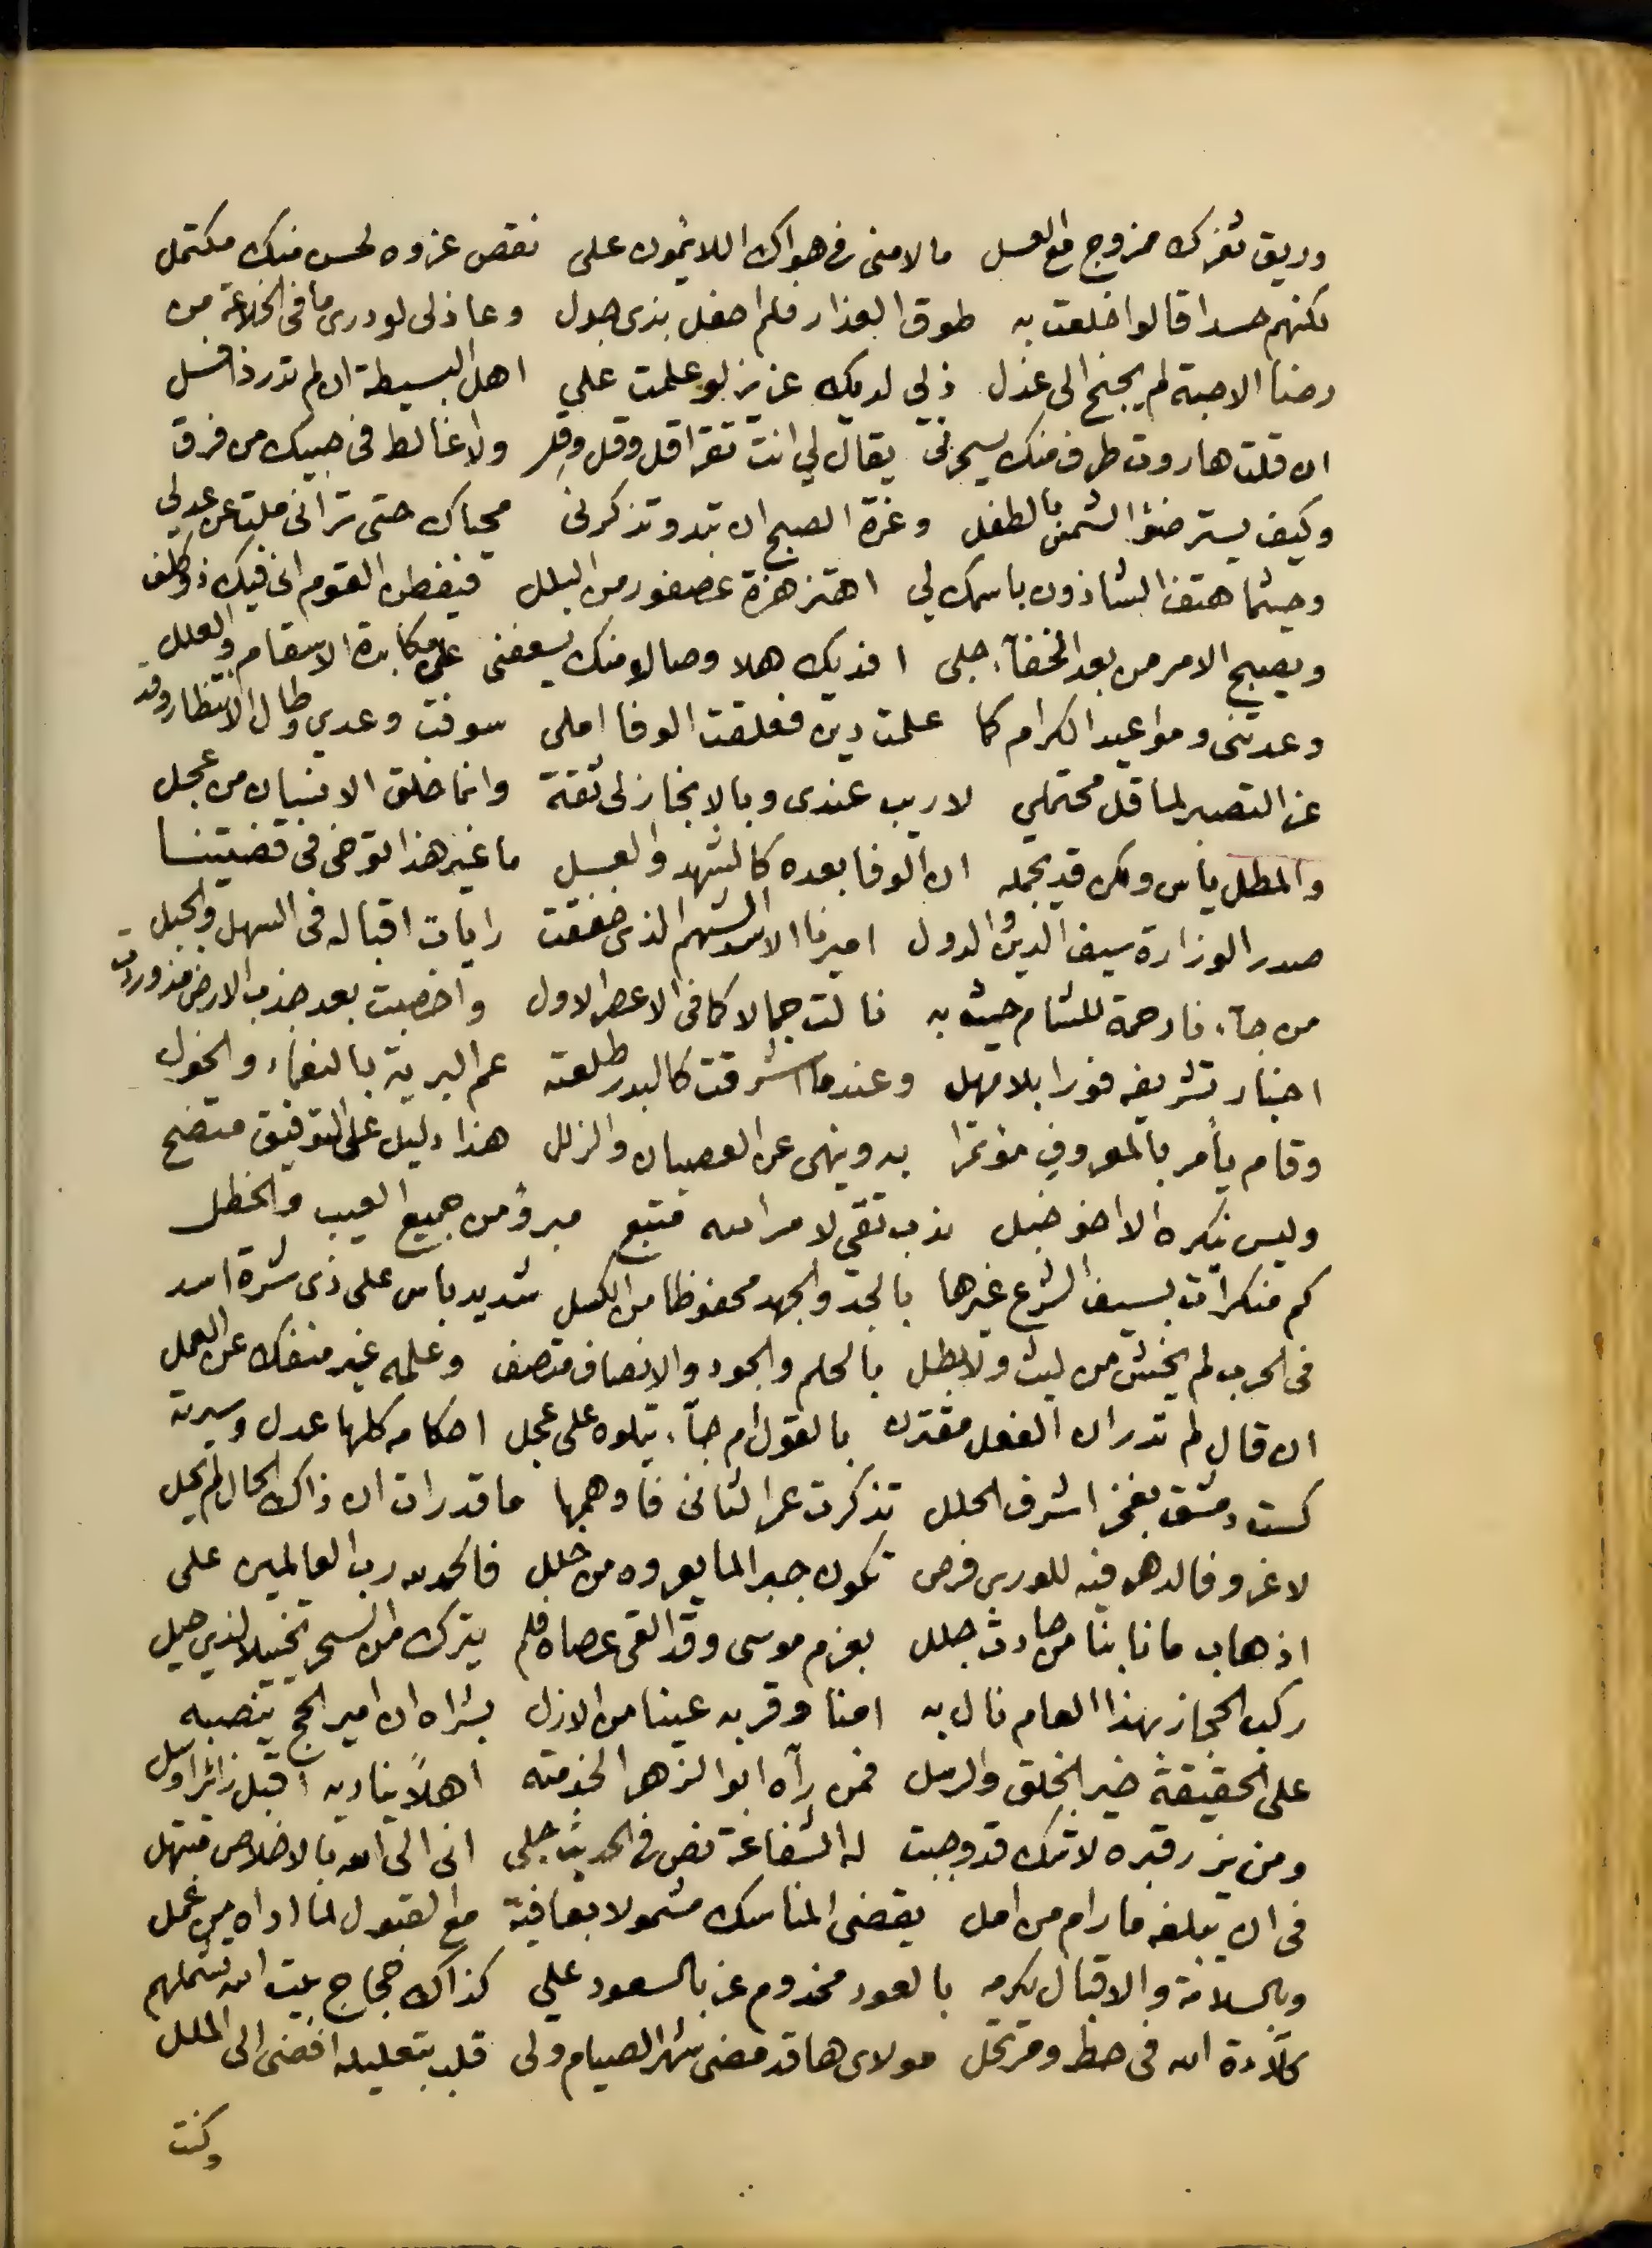 وريق ثغرك ممزوج مع العسل ما لامنى فى هواك اللائمون على نقص عزوه لحسن منك مكتمل
لكنهم حسدا قالوا خلعت به طوق العذار فلم احفل بذى جدل وعاذلى لو درى ما فى الخلاعة من
رضا الاحبة لم يجنح الى عذل ذلى لديك عزيز لو علمت على اهل البسيطة ان لم تدر ذا فسل
ان قلت هاروت طرف منك يسحرنى يقال لي انت تقرا قل وقل وقل ولا غالط فى حبيك من فرق
وكيف يستر ضؤ الشمس بالطفل وغرة الصبح ان تبدو تذكرنى محياك حتى ترانى ملت عن عدلي
وحيثما هتف الشادون باسمك لي اهتز هزة عصفور من البلل فيفطن القوم انى فيك ذو كلف
ويصبح الامر من بعد الخفآء جلى افديك هلا وصالا منك يسعفنى على مكابدة الاسقام والعلل
وعدتنى ومواعيد الكرام كما علمت دين فعلقت الوفا املى سوفت وعدي وطال الانتظار وقد
عز التصبر لما قل محتملي لا ريب عندى وبالانجاز لى ثقة وانما خلق الانسان من عجل
والمطل يأس ولكن قد يحمله ان الوفا بعده كالشهد والعسل ما غير هذا توخى فى قضيتنا
صدر الوزارة سيف الدين والدول اميرنا الاسد الشهم الذى خفقت رايات اقباله فى السهل والجبل
من جآءنا رحمة للشام حيث به نالت جمالا كما فى الاعصر الاول واخصبت بعد جذب الارض مذ وردت
اخبار تشريفه فورا بلا مهل وعندما اشرقت كالبدر طلعته عم البرية بالنعماء والخول
وقام يأمر بالمعروف مؤتمرا به وينهى عن العصيان والزلل هذا دليل على التوفيق متضح
وليس ينكره الا اخو خبل ندب تقي لامر الله متبع مبرؤ من جميع العيب والخطل
كم منكرات بسيف الشرع غيرها بالجد والجهد محفوظا من الكسل شديد باس على ذى شرة اسد
فى الحرب لم يخش من ليث ولا بطل بالحلم والجود والانصاف متصف وعلمه غير منفك عن العمل
ان قال لم تدر ان الفعل مقترن بالقول ام جآء يتلوه على عجل احكامه كلها عدل وسيرته
كست دمشق بفخر اشرف الحلل تذكرت عمر الثانى فاوهمها ما قد رات ان ذاك الحال لم يحل
لا غرو فالدهر فيه للورى فرص تكون جبرا لما يعروه من خلل فالحمد لله رب العالمين على
اذهاب ما نابنا من حادث جلل بعزم موسى وقد القى عصاه فلم يترك من السحر تخييلا لذي حيل
ركب الحجاز بهذا العام نال به امنا وقر به عينا من الازل بشراه ان امير الحج ينصبه
على الحقيقة خير الخلق والرسل فمن رآه ابو الزهرا لخدمته اهلا يناديه اقبل زائرا وسل
ومن يزر قبره لا شك قد وجبت له الشفاعة نص فى الحديث جلى انى الى الله بالاخلاص مبتهل
فى ان يبلغه ما رام من امل يقضى المناسك مشمولا بعافية مع القبول لما اداه من عمل
وبالسلامة والاقبال يكرمه بالعود مخدوم عز بالسعود علي كذاك حجاج بيت الله تشملهم
كلآءة الله فى حط ومرتحل مولاى ها قد مضى شهر الصيام ولى قلب بتعليله افضى الى الملل
وكنت